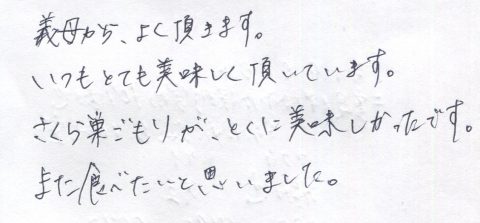 義母から、よく頂きます。
いつもとても美味しく頂いています。
さくら巣ごもりが、とくに美味しかったです。
また食べたいと思いました。